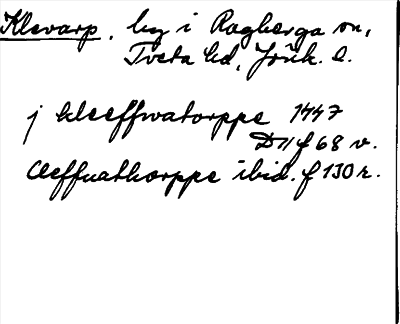 Klevarp, by i Rogberga sn,
Tveta hd, Jönk. l.
j kleeffwatorppe 1447
D 11 f 68 v.
Cleffuathorppe ibid. f 130 r.